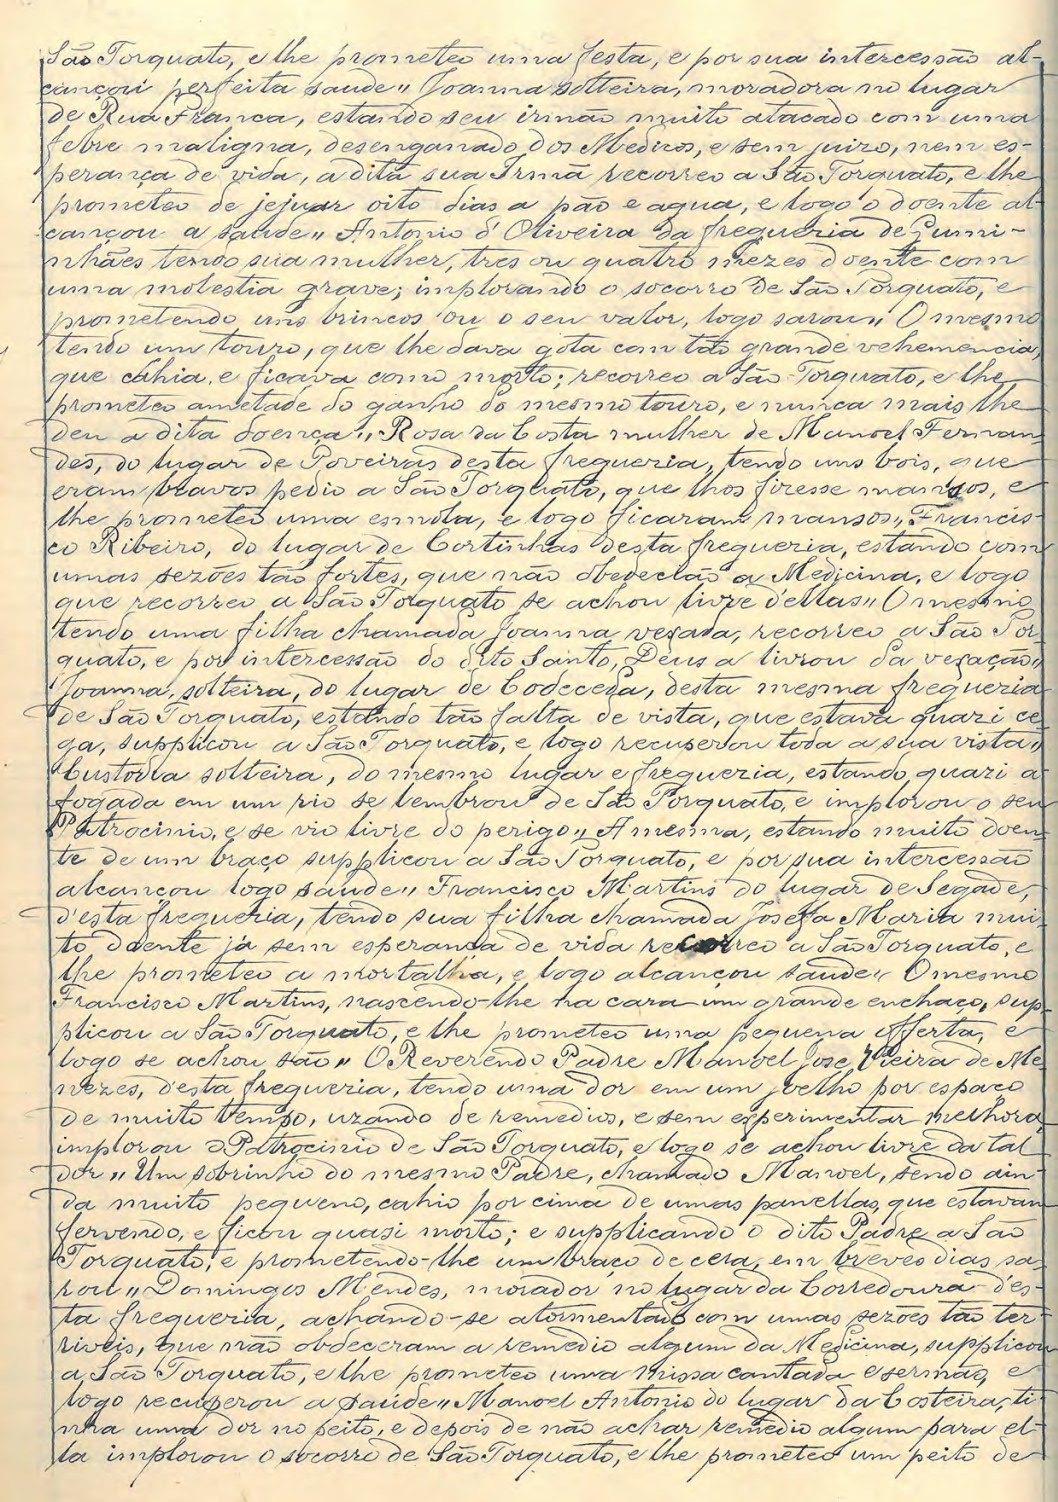 São Torquato, e lhe prometeo uma festa, e por sua intercessão al-
cançou perfeita saude,, Joanna solteira, moradora no lugar
de Rua Franca, estando seu irmão muito atacado com uma
febre maligna, desenganado dos Medicos, e sem juizo, nem es-
perança de vida, a dita sua Irmã recorreo a São Torquato, e lhe
prometeo de jejuar oito dias a pão e agua, e logo o doente al-
cançou a saude,, Antonio d'Oliveira da freguezia de Gumi-
nhães tendo sua mulher, tres ou quatro mezes doente com
uma molestia grave; implorando o socorro de São Torquato, e
prometendo uns brincos ou o seu valor, logo sarou,, O mesmo
tendo um touro, que lhe dava gota com tão grande vehemencia,
que cahia, e ficava como morto; recorreo a São Torquato, e lhe
prometeo ametade do ganho do mesmo touro, e nunca mais lhe
deu a dita doença,, Rosa da Costa mulher de Manoel Fernan-
des, do lugar de Poveiras desta freguezia, tendo uns bois, que
eram bravos pedio a São Torquato, que lhos fizesse mansos, e
lhe prometeo uma esmola, e logo ficaram mansos,, Francis-
co Ribeiro, do lugar de Cortinhas desta freguezia, estando com
umas sezões tão fortes, que não obedecião a Medicina, e logo
que recorreo a São Torquato se achou livre d'ellas,, O mesmo
tendo uma filha chamada Joanna vexada, recorreo a São Tor-
quato, e por intercessão do dito Santo, Deus a livrou da vexação,,
Joanna, solteira, do lugar de Codeceda, desta mesma freguezia
de São Torquato, estando tão falta de vista, que estava quazi ce-
ga, supplicou a São Torquato, e logo recuperou toda a sua vista,,
Custodia solteira, do mesmo lugar e freguezia, estando quazi a-
fogada em um rio se lembrou de São Torquato, e implorou o seu
Patrocinio, e se vio livre do perigo,, A mesma, estando muito doen-
te de um braço supplicou a São Torquato, e por sua intercessão
alcançou logo saude,, Francisco Martins do lugar de Segade,
d'esta freguezia, tendo sua filha chamada Josefa Maria mui-
to doente já sem esperança de vida recorreo a São Torquato, e
lhe prometeo a mortalha, e logo alcançou saude,, O mesmo
Francisco Martins, nascendo-lhe na cara um grande enchaço, sup-
plicou a São Torquato, e lhe prometeo uma pequena offerta, e
logo se achou são,, O Reverendo Padre Manoel Jose Vieira de Me-
nezes, d'esta freguezia, tendo uma dor em um joelho por espaço
de muito tempo, uzando de remedios, e sem experimentar melhora,
implorou o Patrocinio de São Torquato, e logo se achou livre da tal
dor,, Um sobrinho do mesmo Padre, chamado Manoel, sendo ain-
da muito pequeno, cahio por cima de umas panellas, que estavam
fervendo, e ficou quasi morto; e supplicando o dito Padre a São
Torquato, e prometendo-lhe um braço de cera, em breves dias sa-
rou,, Domingos Mendes, morador no lugar da Corredoura d'es-
ta freguezia, achando-se atormentado com umas sezões tão ter-
riveis, que não obdeceram a remedio algum da Medicina, supplicou
a São Torquato, e lhe prometeo uma Missa cantada e sermão, e
logo recuperou a saude,, Manoel Antonio do lugar da Costeira, ti-
nha uma dor no peito, e depois de não achar remedio algum para el-
la implorou o socorro de São Torquato, e lhe prometeo um peito de